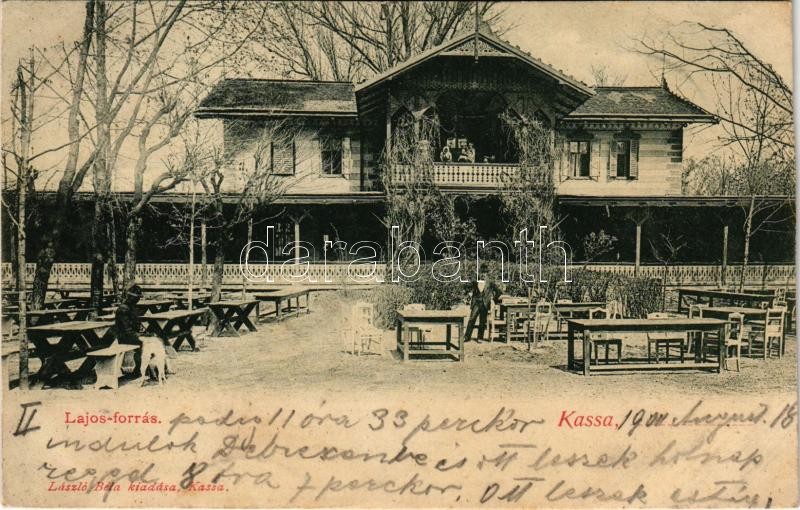 darabanth.com
II
Lajos-forrás. 11 óra 33 perckor
Kassa, 1900 August. 18
indulok Debreczenbe és ott leszek holnap
reggel 8 óra 7 perckor. Ott leszek estig,
László Béla kiadása, Kassa.